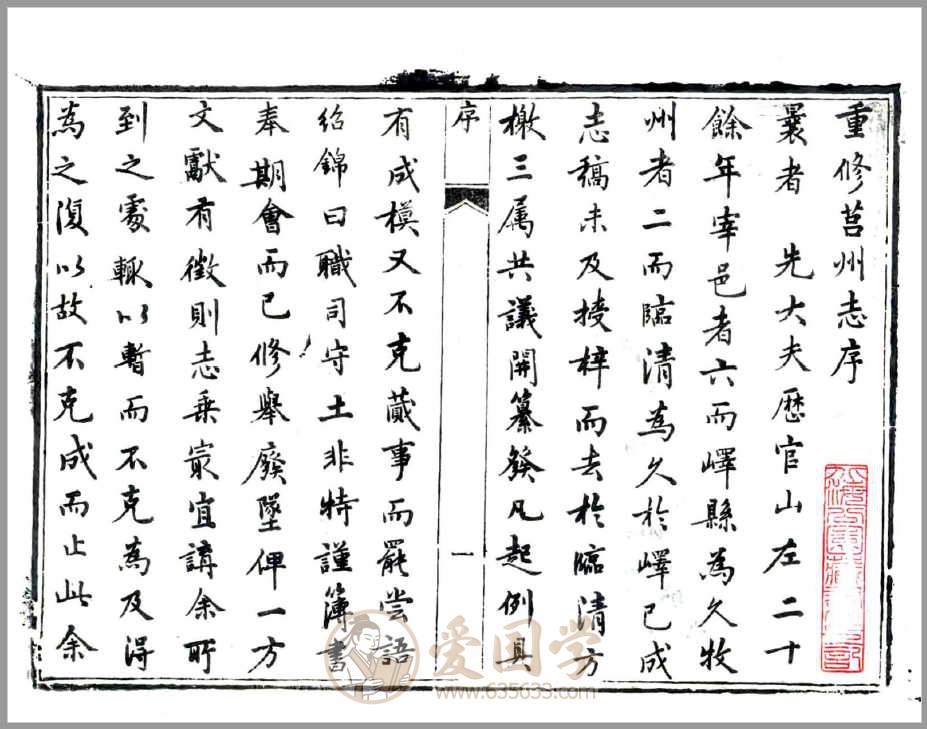 重修莒州志序
曩者　先大夫歷官山左二十
餘年宰邑者六而嶧縣為久牧
州者二而臨清為久於嶧已成
志稿未及授梓而去於臨清方
檄三属共議開纂發凡起例具
序
一
有成模又不克蕆事而罷尝語
紹錦曰職司守土非特謹簿書
奉期會而已修舉廢墜俾一方
文獻有徵則志乗㝡宜講余所
到之處輒以暫而不克為及得
為之復以故不克成而止此余
爱国学
www.635633.com